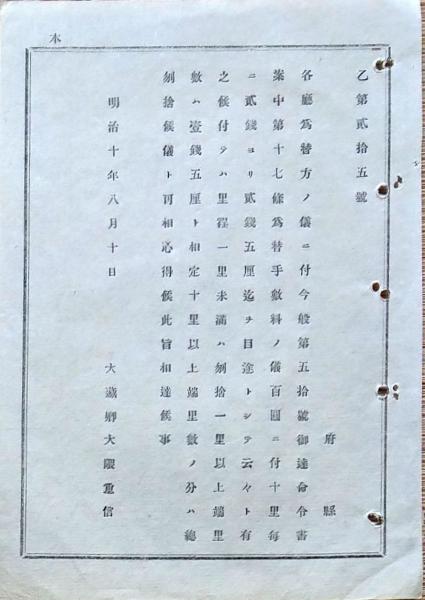 乙第貳拾五號
府縣
各廳爲替方ノ儀ニ付今般第五拾號御達命令書
案中第十七條爲替手數料ノ儀百圓ニ付十里每
ニ貳錢ヨリ貳錢五厘迄ヲ目途トシテ云々ト有
之候付テハ里程一里未滿ハ刎捨一里以上端里
數ハ壹錢五厘ト相定十里以上端里數ノ分ハ總
刎捨候儀ト可相心得候此旨相達候事
明治十年八月十日
大藏卿大隈重信
本